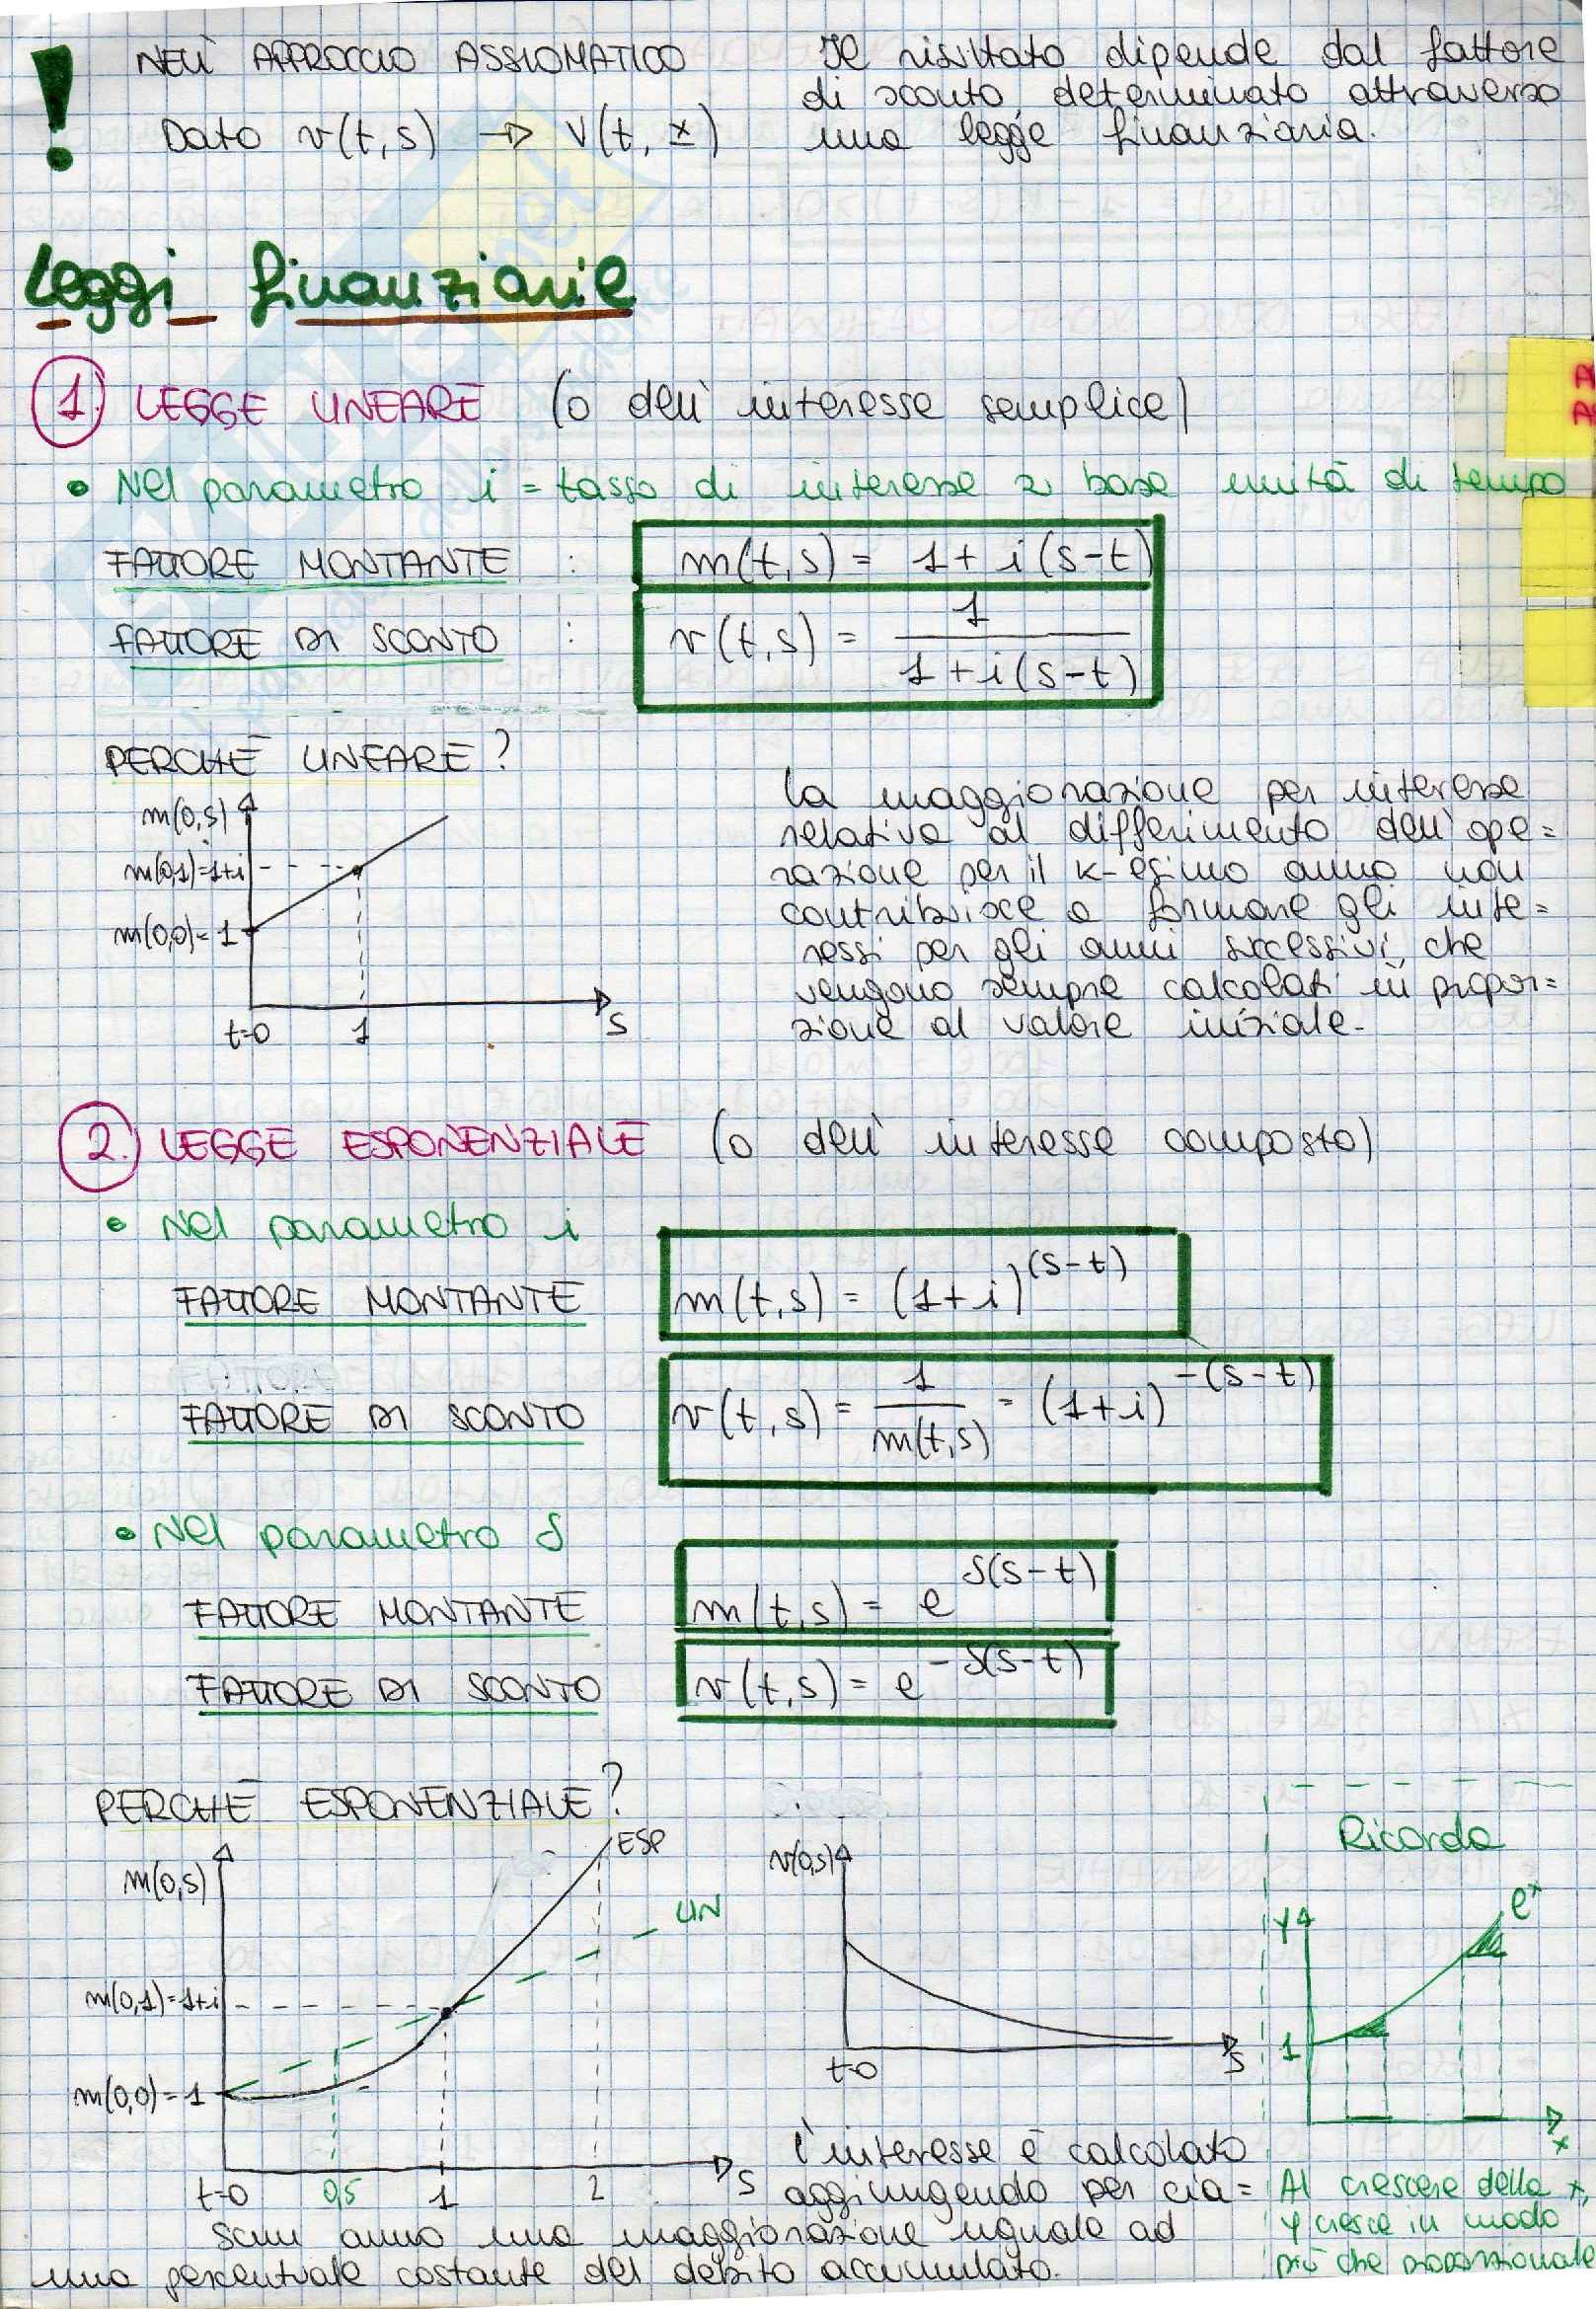 ! NELL' APPROCCIO ASSIOMATICO
Dato v(t,s) → V(t, x)
Il risultato dipende dal fattore
di sconto, determinato attraverso
una legge finanziaria.
Leggi finanziarie
1. LEGGE LINEARE (o dell' interesse semplice)
• Nel parametro i = tasso di interesse a base unità di tempo
FATTORE MONTANTE : m(t,s) = 1 + i(s-t)
FATTORE DI SCONTO : v(t,s) = 1 / (1 + i(s-t))
PERCHÉ LINEARE?
m(0,s)
m(0,1)=1+i
m(0,0)=1
t=0 1 s
La maggiorazione per interesse
relativa al differimento dell'ope=
razione per il k-esimo anno non
contribuisce a formare gli inte=
ressi per gli anni successivi, che
vengono sempre calcolati in propor=
zione al valore iniziale.
2. LEGGE ESPONENZIALE (o dell' interesse composto)
• Nel parametro i
FATTORE MONTANTE m(t,s) = (1+i)^(s-t)
FATTORE DI SCONTO v(t,s) = 1/m(t,s) = (1+i)^-(s-t)
• Nel parametro δ
FATTORE MONTANTE m(t,s) = e^δ(s-t)
FATTORE DI SCONTO v(t,s) = e^-δ(s-t)
PERCHÉ ESPONENZIALE?
m(0,s)
ESP
LIN
m(0,1)=1+i
m(0,0)=1
t=0 0,5 1 2 s
v(0,s)
t=0 s
Ricorda
y
e^x
1
x
Al crescere della x,
y cresce in modo
più che proporzionale
L'interesse è calcolato
aggiungendo per cia=
scun anno una maggiorazione uguale ad
una percentuale costante del debito accumulato.